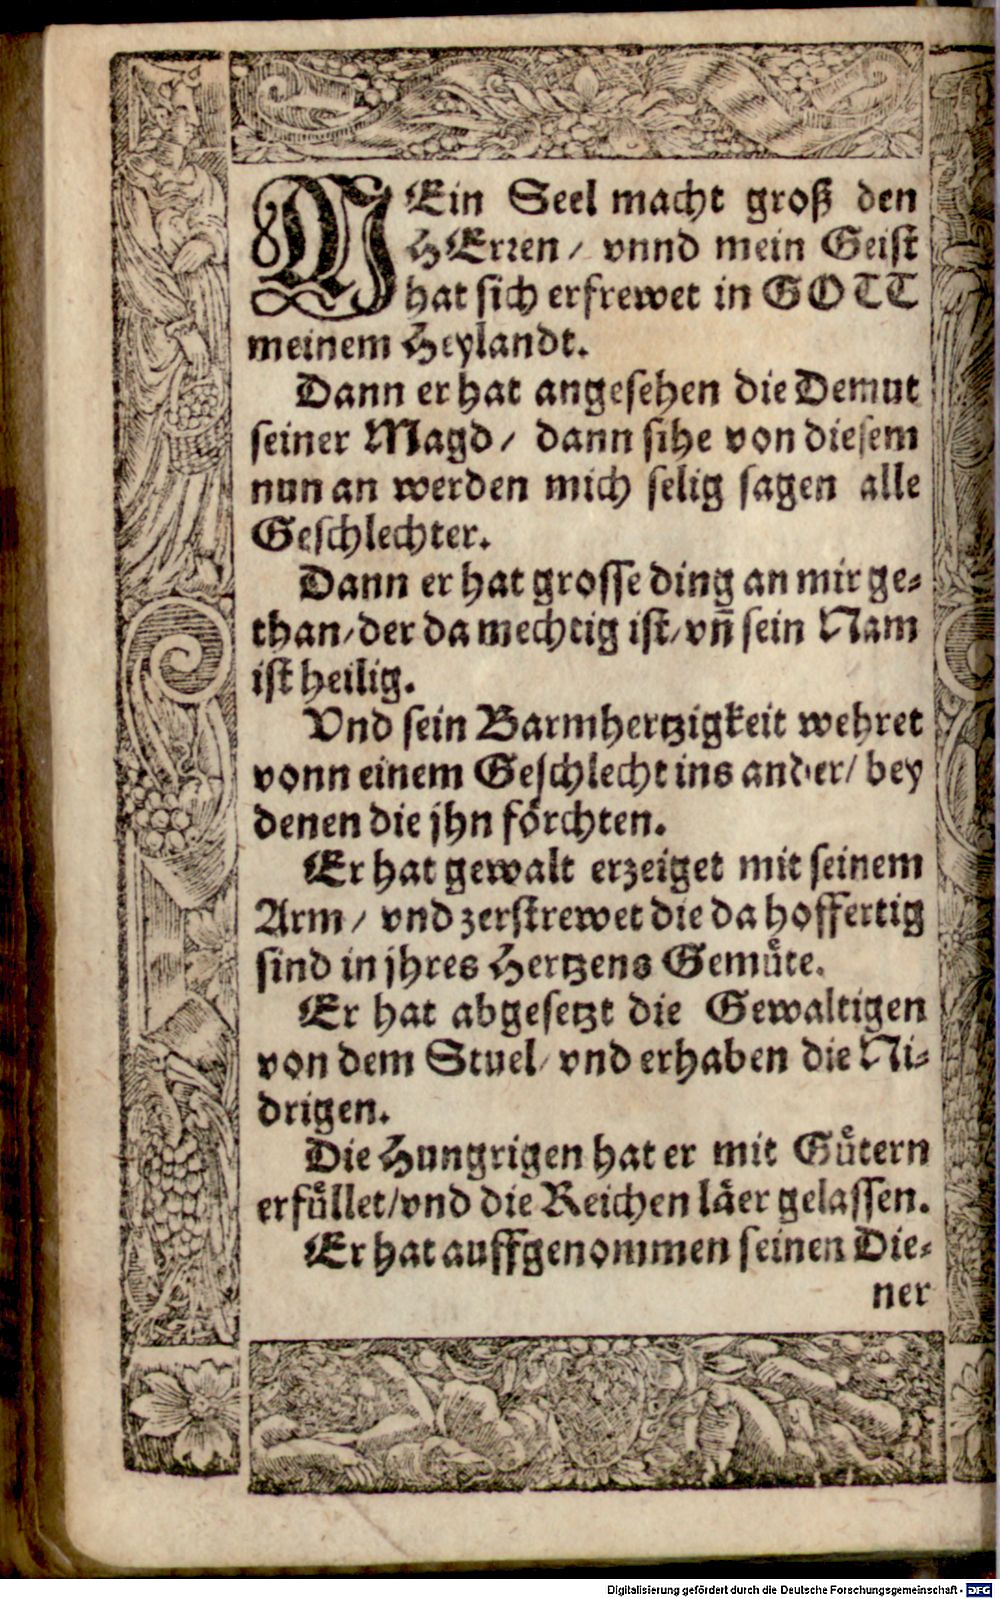 MEin Seel macht groß den
HErren / vnnd mein Geist
hat sich erfrewet in GOTT
meinem Heylandt.
Dann er hat angesehen die Demut
seiner Magd / dann sihe von diesem
nun an werden mich selig sagen alle
Geschlechter.
Dann er hat grosse ding an mir ge-
than / der da mechtig ist / vñ sein Nam
ist heilig.
Vnd sein Barmhertzigkeit wehret
vonn einem Geschlecht ins ander / bey
denen die jhn foͤrchten.
Er hat gewalt erzeiget mit seinem
Arm / vnd zerstrewet die da hoffertig
sind in jhres Hertzens Gemuͤte.
Er hat abgesetzt die Gewaltigen
von dem Stuel / vnd erhaben die Ni-
drigen.
Die Hungrigen hat er mit Guͤtern
erfuͤllet / vnd die Reichen laͤer gelassen.
Er hat auffgenommen seinen Die-
ner
Digitalisierung gefördert durch die Deutsche Forschungsgemeinschaft - DFG